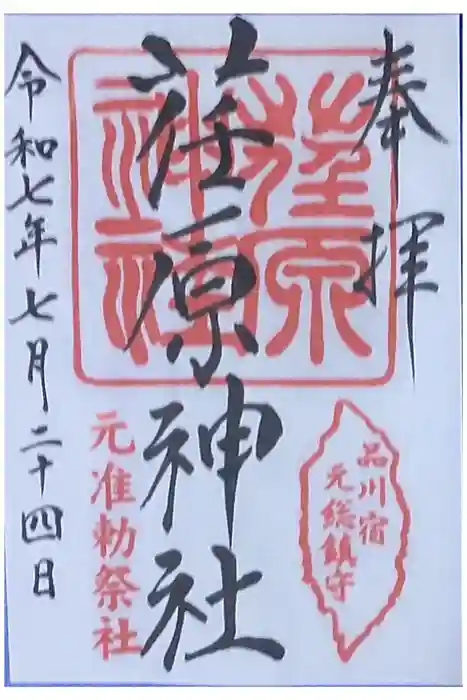 奉拝
品川宿
元総鎮守
荏原神社
荏原神社
元准勅祭社
令和七年七月二十四日